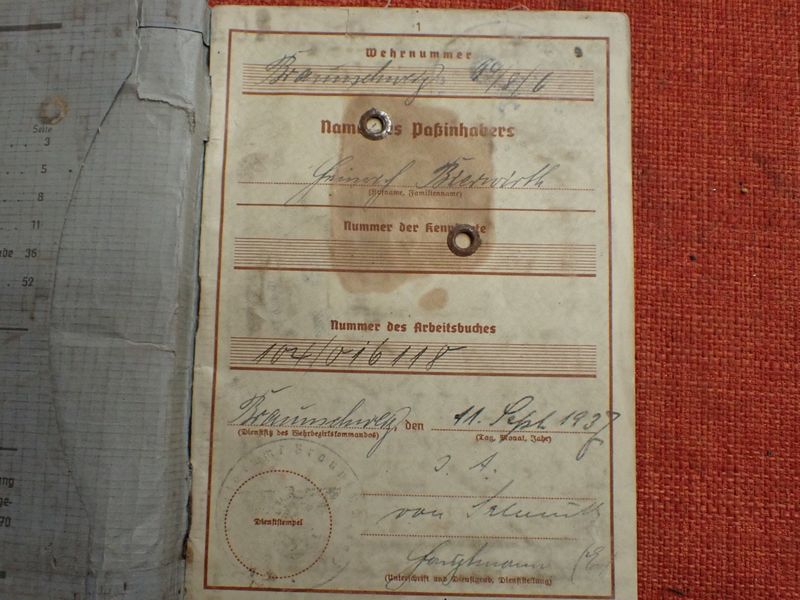 Seite
3
5
8
11
36
52
70
1
Wehrnummer
Braunschweig
Name des Paßinhabers
Heinrich Bierwirth
(Rufname, Familienname)
Nummer der Kennkarte
Nummer des Arbeitsbuches
104/016118
Braunschweig, den 11. Sept. 1937
(Dienstsitz des Wehrbezirkskommandos) (Tag, Monat, Jahr)
J. A.
von
Dienststempel
Hauptmann (E)
(Unterschrift und Dienstgrad, Dienststellung)